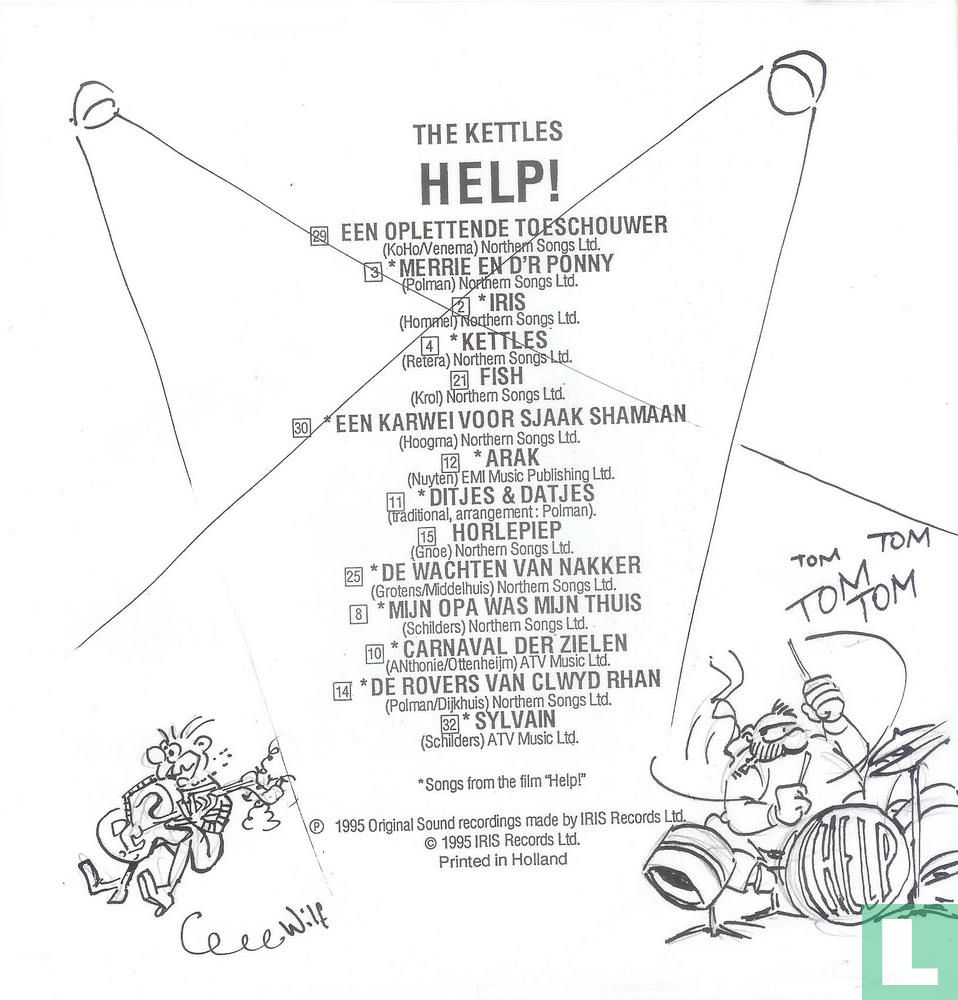 THE KETTLES
HELP!
29 EEN OPLETTENDE TOESCHOUWER
(KoHo/Venema) Northern Songs Ltd.
3 *MERRIE EN D'R PONNY
(Polman) Northern Songs Ltd.
2 *IRIS
(Hommel) Northern Songs Ltd.
4 *KETTLES
(Retera) Northern Songs Ltd.
21 FISH
(Krol) Northern Songs Ltd.
30 *EEN KARWEI VOOR SJAAK SHAMAAN
(Hoogma) Northern Songs Ltd.
12 *ARAK
(Nuyten) EMI Music Publishing Ltd.
11 *DITJES & DATJES
(traditional, arrangement: Polman).
15 HORLEPIEP
(Gnoe) Northern Songs Ltd.
25 *DE WACHTEN VAN NAKKER
(Grotens/Middelhuis) Northern Songs Ltd.
8 *MIJN OPA WAS MIJN THUIS
(Schilders) Northern Songs Ltd.
10 *CARNAVAL DER ZIELEN
(ANthonie/Ottenheijm) ATV Music Ltd.
14 *DE ROVERS VAN CLWYD RHAN
(Polman/Dijkhuis) Northern Songs Ltd.
32 *SYLVAIN
(Schilders) ATV Music Ltd.
*Songs from the film "Help!"
℗ 1995 Original Sound recordings made by IRIS Records Ltd.
© 1995 IRIS Records Ltd.
Printed in Holland
TOM TOM
TOM TOM
HELP
Wilf
L